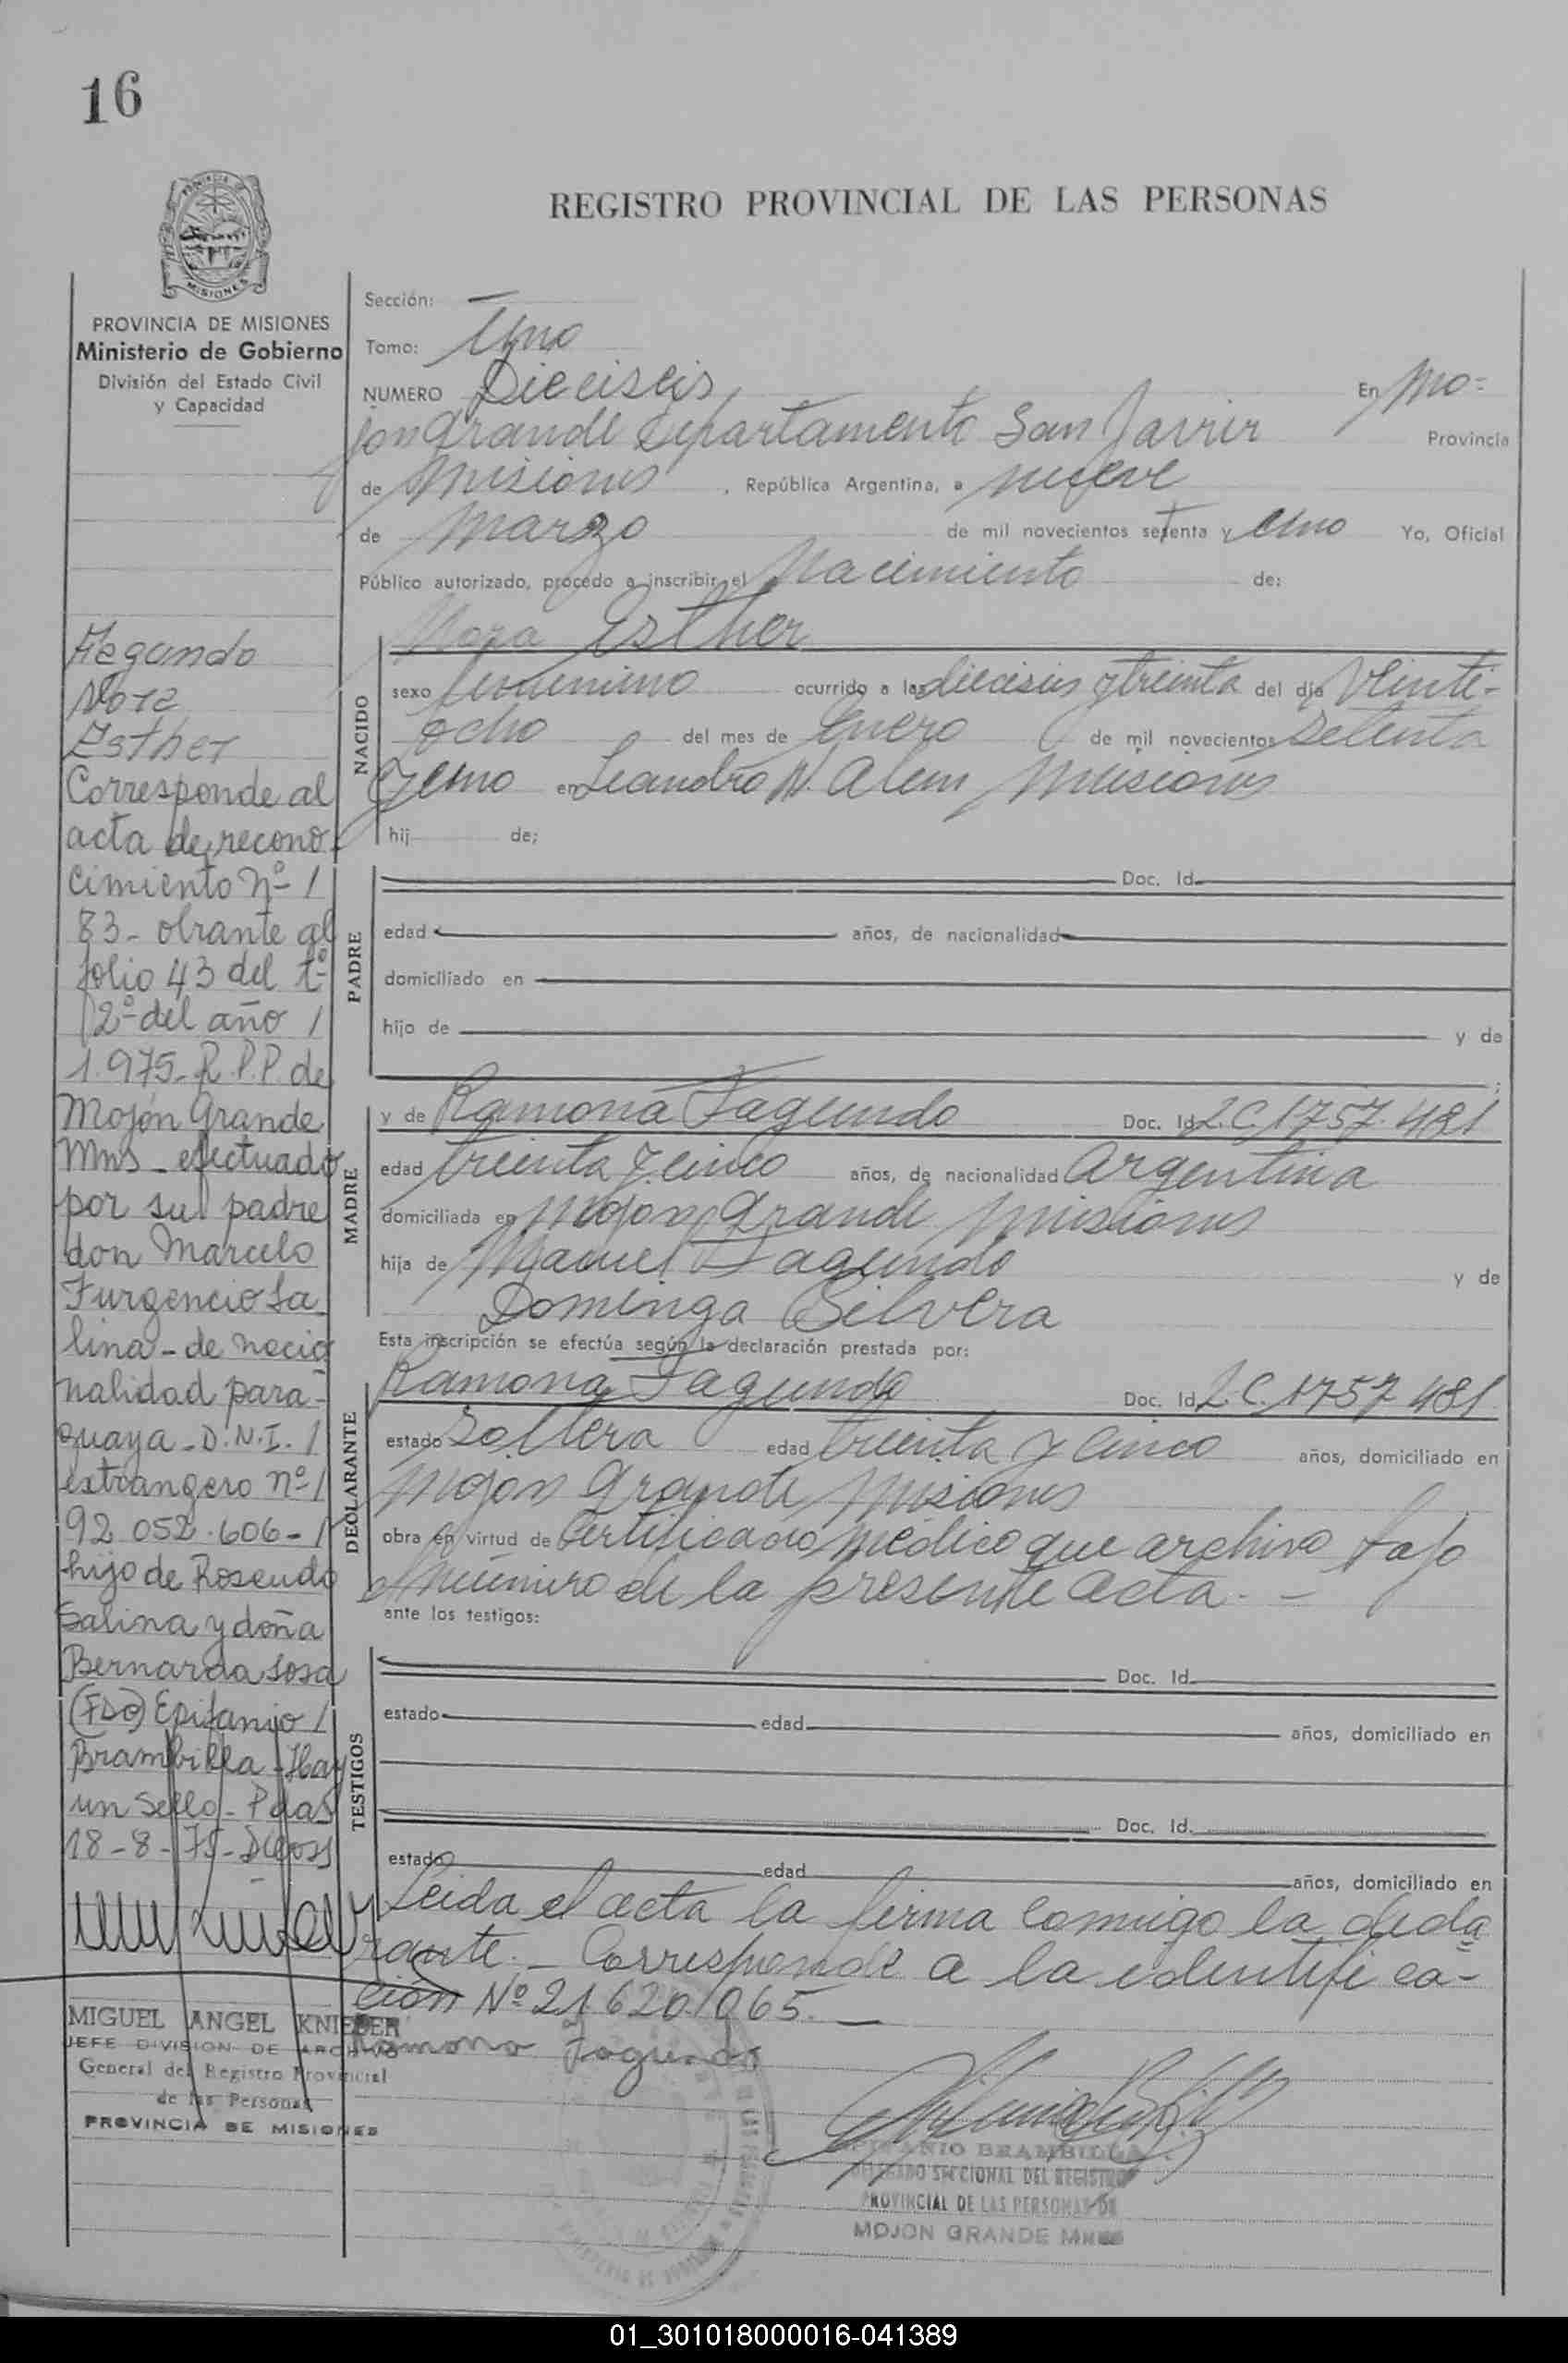 16
REGISTRO PROVINCIAL DE LAS PERSONAS
MISIONES
PROVINCIA DE MISIONES
Ministerio de Gobierno
División del Estado Civil
y Capacidad
Fegundo
Nora
Esther
Corresponde al
acta de recono
cimiento nº /
83 - obrante al
folio 43 del tº
2º del año /
1.975 - R.P.P. de
Mojón Grande
Mns - efectuado
por su padre
don Marcelo
Furgencio Sa
lina - de nacio
nalidad para-
guaya - D.N.I. /
extrangero nº /
92.052.606 - /
hijo de Rosendo
Salina y doña
Bernarda Sosa
(FDO) Epifanio /
Brambilla - Hay
un sello - Pdas
18-8-75 -
MIGUEL ANGEL KNIEBER
JEFE DIVISION DE ARCHIVO
General del Registro Provincial
de las Personas
PROVINCIA DE MISIONES
Sección: —
Tomo: Uno
NUMERO Dieciseis En Mo=
jon Grande Departamento San Javier Provincia
de Misiones , República Argentina, a nueve
de Marzo de mil novecientos setenta y Uno Yo, Oficial
Público autorizado, procedo a inscribir el Nacimiento de:
NACIDO
Nora Esther
sexo femenino ocurrido a las dieciseis y treinta del día Veinti-
ocho del mes de Enero de mil novecientos setenta
y uno en Leandro N. Alem Misiones
hij de;
PADRE
Doc. Id.
edad años, de nacionalidad
domiciliado en
hijo de y de
;
MADRE
y de Ramona Fagundo Doc. Id. L.C. 1757.481
edad treinta y cinco años, de nacionalidad Argentina
domiciliada en Mojon Grande Misiones
hija de Manuel Fagundo y de
Dominga Silvera
Esta inscripción se efectúa según la declaración prestada por:
DECLARANTE
Ramona Fagundo Doc. Id. L.C. 1757.481
estado Soltera edad treinta y cinco años, domiciliado en
Mojon Grande Misiones
obra en virtud de Certificado médico que archivo bajo
el número de la presente acta. -
ante los testigos:
TESTIGOS
Doc. Id.
estado edad años, domiciliado en
Doc. Id.
estado edad años, domiciliado en
Leida el acta la firma conmigo la decla
rante. - Corresponde a la identifica-
ción Nº 21.620.065. —
Ramona Fagundo
EPIFANIO BRAMBILLA
DELEGADO SECCIONAL DEL REGISTRO
PROVINCIAL DE LAS PERSONAS DE
MOJON GRANDE
01_301018000016-041389